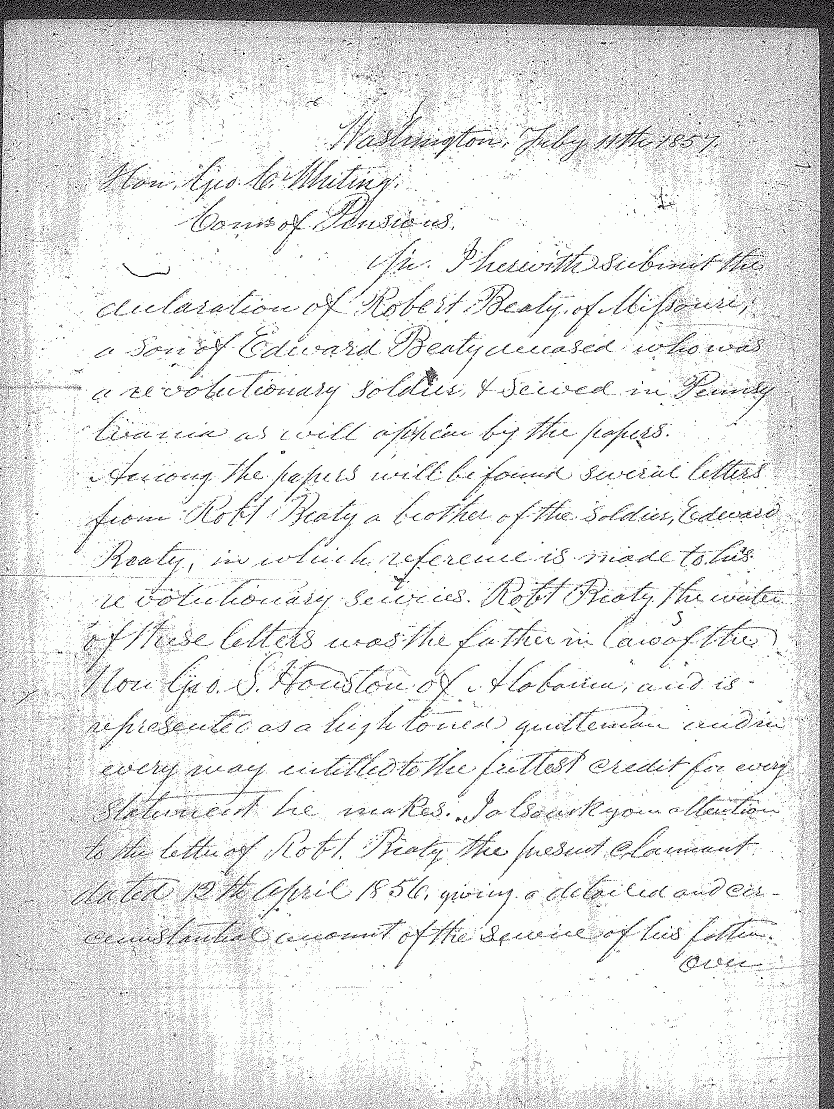 Washington, Feby 11th 1857.
Hon. Geo. C. Whiting,
Comr of Pensions.
Sir. I herewith submit the
declaration of Robert Beaty, of Missouri,
a son of Edward Beaty deceased who was
a revolutionary soldier, & served in Pennsy
lvania as will appear by the papers.
Among the papers will be found several letters
from Robt Beaty a brother of the soldier, Edward
Beaty, in which reference is made to his
revolutionary services. Robt Beaty the writer
of these letters was the father in law of the
Hon Geo. S. Houston of Alabama, and is
represented as a high toned gentleman and in
every way entitled to the fullest credit for every
statement he makes. I also ask your attention
to the letter of Robt. Beaty the present claimant
dated 12th April 1856, giving a detailed and cir-
cumstantial account of the service of his father.
Over